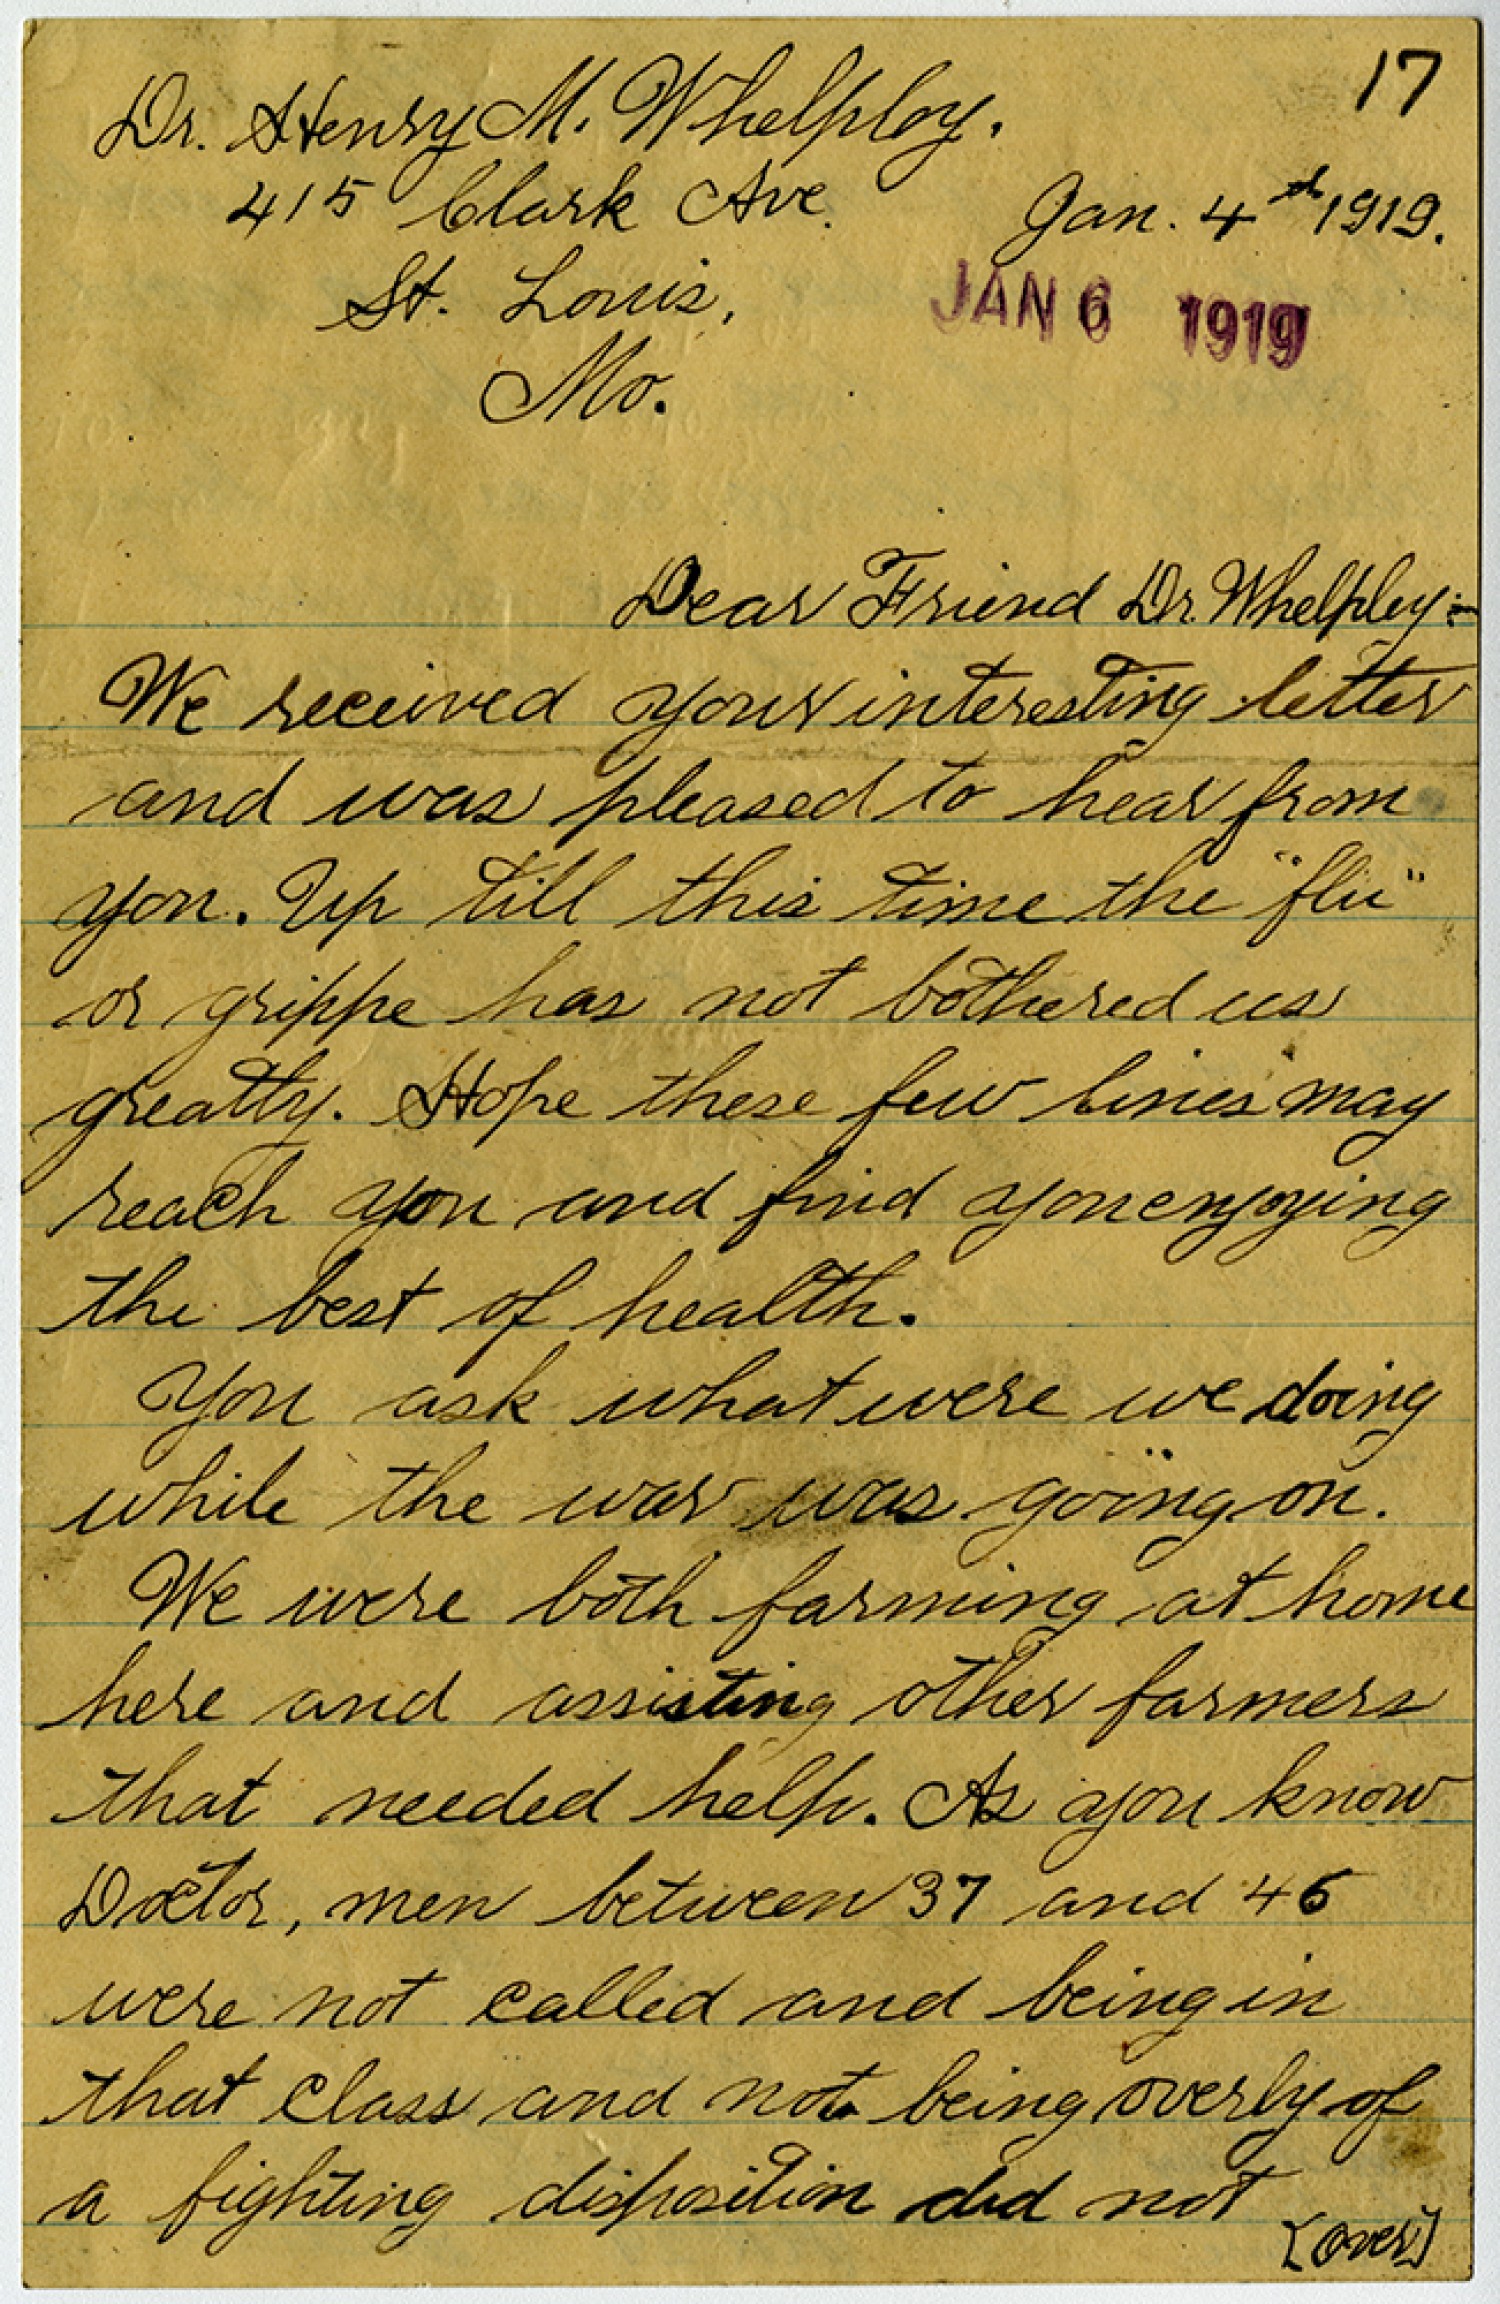 17
Dr. Henry M. Whelpley.
415 Clark Ave. Jan. 4th 1919.
St. Louis, JAN 6 1919
Mo.
Dear Friend Dr. Whelpley:-
We received your interesting letter
and was pleased to hear from
you. Up till this time the "flu"
or grippe has not bothered us
greatly. Hope these few lines may
reach you and find you enjoying
the best of health.
You ask what were we doing
while the war was going on.
We were both farming at home
here and assisting other farmers
that needed help. As you know
Doctor, men between 37 and 46
were not called and being in
that class and not being overly of
a fighting disposition did not
[over]